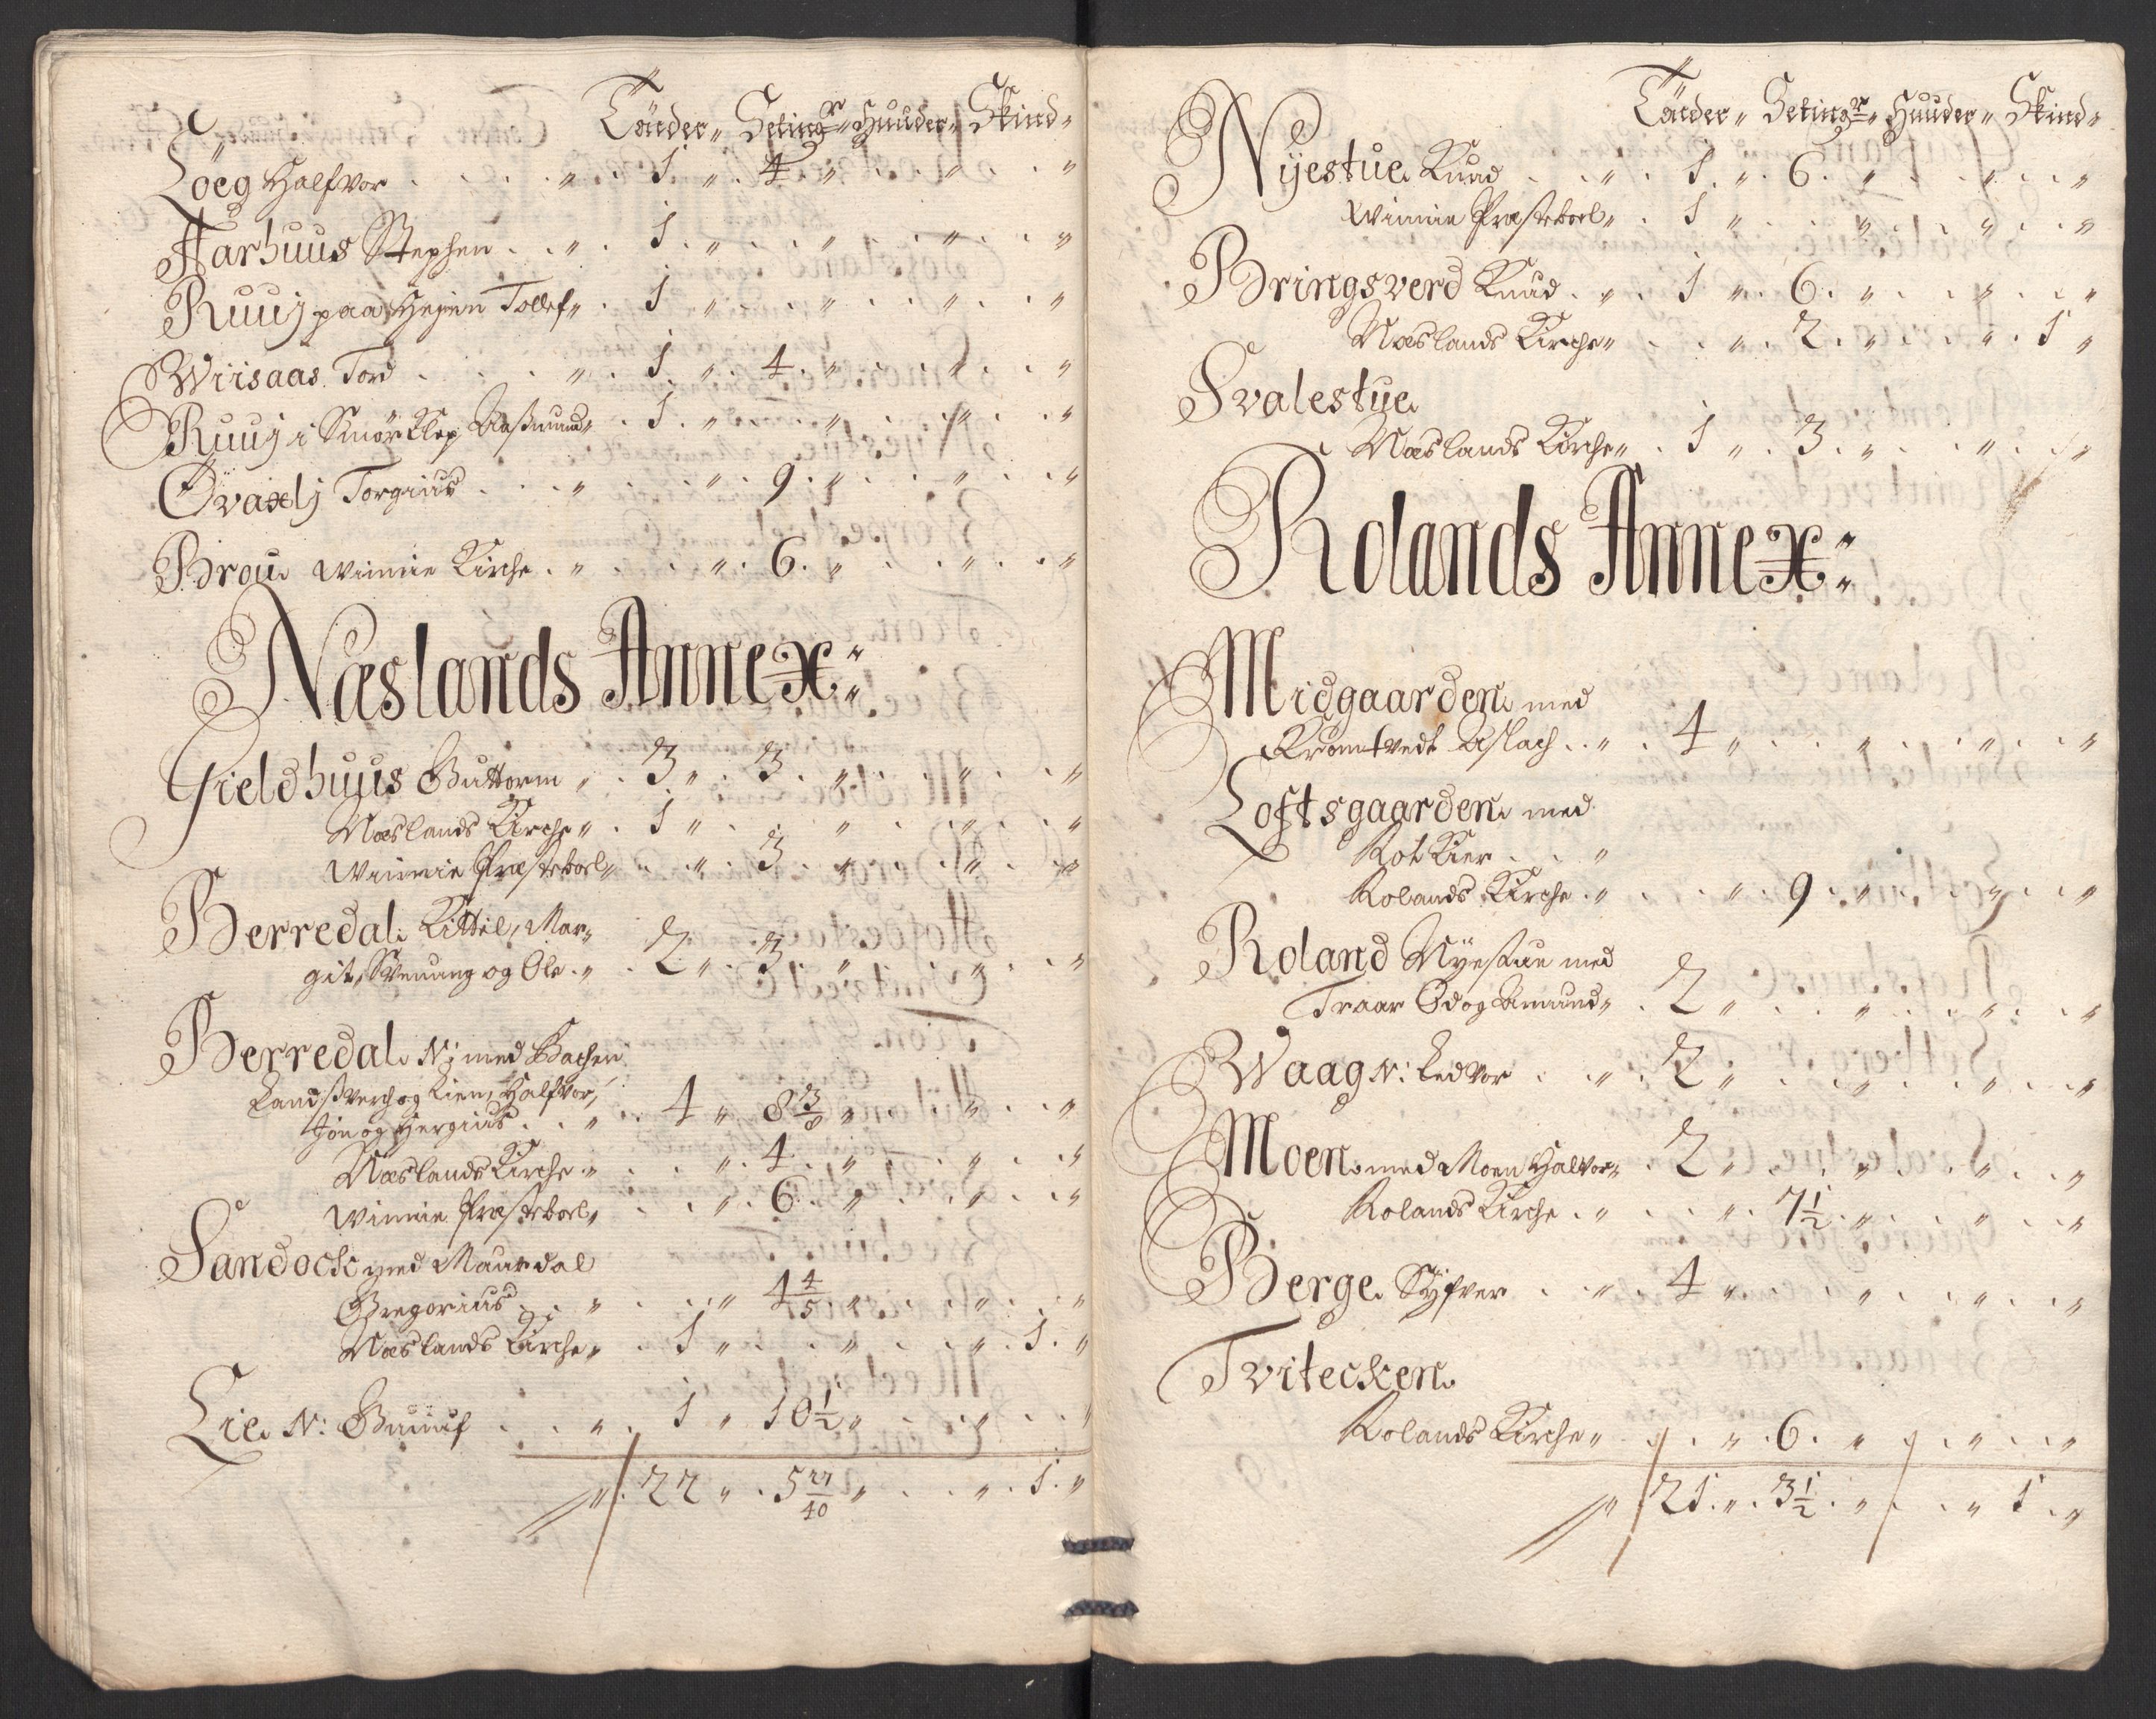 Tönder„ Setingr„ Huuder„ Skind„
Löeg Halfvor . . . . „ . 1 „ . 4 „ . . „ . . „
Aarhuus Stephen . . „ . 1 . „ . . „ . . „ . . „
Ruuj paa Hejen Tollef„ . 1 „ . . „ . . „ . . „
Wiisaas Tord . . . . „ . 1 . „ . 4 . „ . . „ . . „
Ruuj i Smörklep Aasmund„ . 1 . „ . . „ . . „ . . „
Øvaxlj Torgiuus . . . „ . . . „ . 9 . „ . . „ . . „
Brou Winnie Kirche . „ . . . „ . 6 . „ . . „ . . „
Næslands Annex:
Gieldhuus Guttorm „ . 3 „ . 3 . „ . . „ . . „
Næslands Kirche „ . 1 „ . . „ . . „ . . „
Winnie Præsteboel„ . . „ . 3 . „ . . „ . . „
Berredal Kittil, Mar„
git, Svenung og Ole . „ . 2 „ . 3 . „ . . „ . . „
Berredal N: med Bachen
Landsverch og Lien, Halfvor,
Jon og Hergiuus . . „ . 4 „ 8 3/8 „ . . „ . . „
Næslands Kirche . „ . . . „ . 4 . „ . . „ . . „
Winnie Præsteboel„ . . . „ . 6 . „ . . „ . . „
Sandock med Maurdal
Gregoriuus . . „ . . . „ 4 4/5 . „ . . „ . . „
Næslands Kirche„ . 1 „ . . „ . . „ . 1 . „
Lie N: Gunuf . . . „ . 1 „ 10 1/2 „ . . „ . . „
„ . 22 „ . 5 27/40 „ . . „ . 1 . „
Tönder„ Setingr„ Huuder„ Skind„
Nÿestue Knud . . „ . 1 . „ . 6 . „ . . „ . . „
Winnie Præsteboel„ . 1 „ . . „ . . „ . . „
Bringsverd Knud . „ . 1 „ . 6 . „ . . „ . . „
Næslands Kirche„ . . . „ . 2 . „ . . „ . 1 „
Svalestue
Næslands Kirche„ . 1 „ . 3 . „ . . „ . . „
Rolands Annex:
Midgaarden med
Kromtvedt Aslach . . „ . 4 „ . . „ . . „ . . „
Loftsgaarden med
Rotkier . . „
Rolands Kirche . „ . . . „ . 9 . „ . . „ . . „
Roland Nÿestue med
Traar Od og Amund„ . 2 „ . . „ . . „ . . „
Waag N: Ledvor . . „ . 2 „ . . „ . . „ . . „
Moen med Moen Halvor„ . 2 „ . . „ . . „ . . „
Rolands Kirche . „ . . . „ . 7 1/2 . „ . . „ . . „
Berge Syfver . . „ . 4 „ . . „ . . „ . . „
Tvitecken
Rolands Kirche„ . . . „ . 6 . „ . . „ . . „
„ . 21 . „ . 3 1/2 . „ . . „ 1 . „